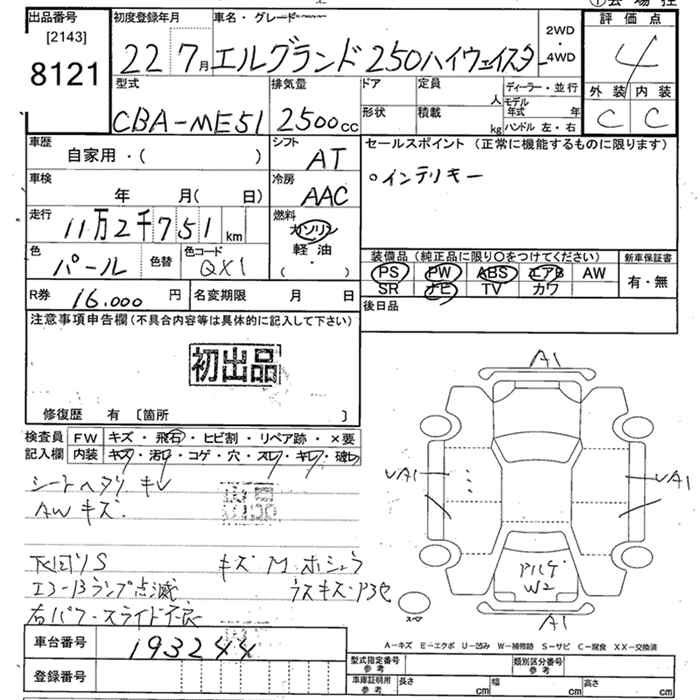 出品番号 初度登録年月 車名・グレード 会場控
[2143]
8121
22 7月 エルグランド 250ハイウェイスター 2WD・4WD
評価点
4
外装 内装
C C
型式 排気量 ドア 定員 人 ディーラー・並行
CBA-ME51 2500cc 形状 積載 kg モデル年式 年 ハンドル 左・右
車歴 シフト
自家用・( ) AT
車検 冷房
年 月( 日) AAC
走行 燃料
11万2千751km ガソリン
軽油
( ・ )
色 色替 色コード
パール QX1
セールスポイント (正常に機能するものに限ります)
○インテリキー
装備品 (純正品に限り○をつけてください) 新車保証書
PS PW ABS エアB AW 有・無
SR ナビ TV カワ
後日品
R券 16.000円 名変期限 月 日
注意事項申告欄 (不具合内容等は具体的に記入して下さい)
初出品
修復歴 有 [箇所 ]
検査員 FW キズ・飛石・ヒビ割・リペア跡・×要
記入欄 内装 キズ・汚レ・コゲ・穴・スレ・キレ・破レ
シートヘタリ キレ
AWキズ
下回りS キズ M.ホシュウ
エアーBランプ点滅 ウスキズ・アタセ
右パワースライド不良
A1
UA1 UA1
アルゲ
W2
スペア
A1
A-キズ E-エクボ U-凹み W-補修跡 S-サビ C-腐食 XX-交換済
車台番号 193244
登録番号
型式指定番号 参考 類別区分番号 参考
車庫証明用 参考 長さ cm 幅 cm 高さ cm